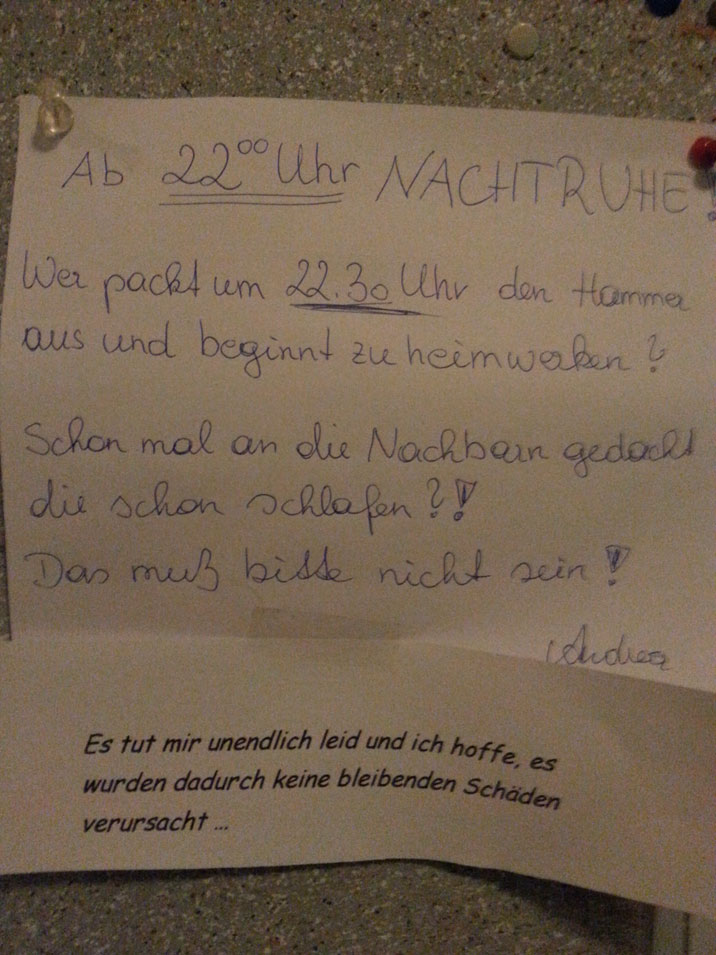 Ab 22⁰⁰ Uhr NACHTRUHE!
Wer packt um 22.30 Uhr den Hammer
aus und beginnt zu heimwerken?
Schon mal an die Nachbarn gedacht
die schon schlafen?!
Das muß bitte nicht sein!
Andrea
Es tut mir unendlich leid und ich hoffe, es
wurden dadurch keine bleibenden Schäden
verursacht ...